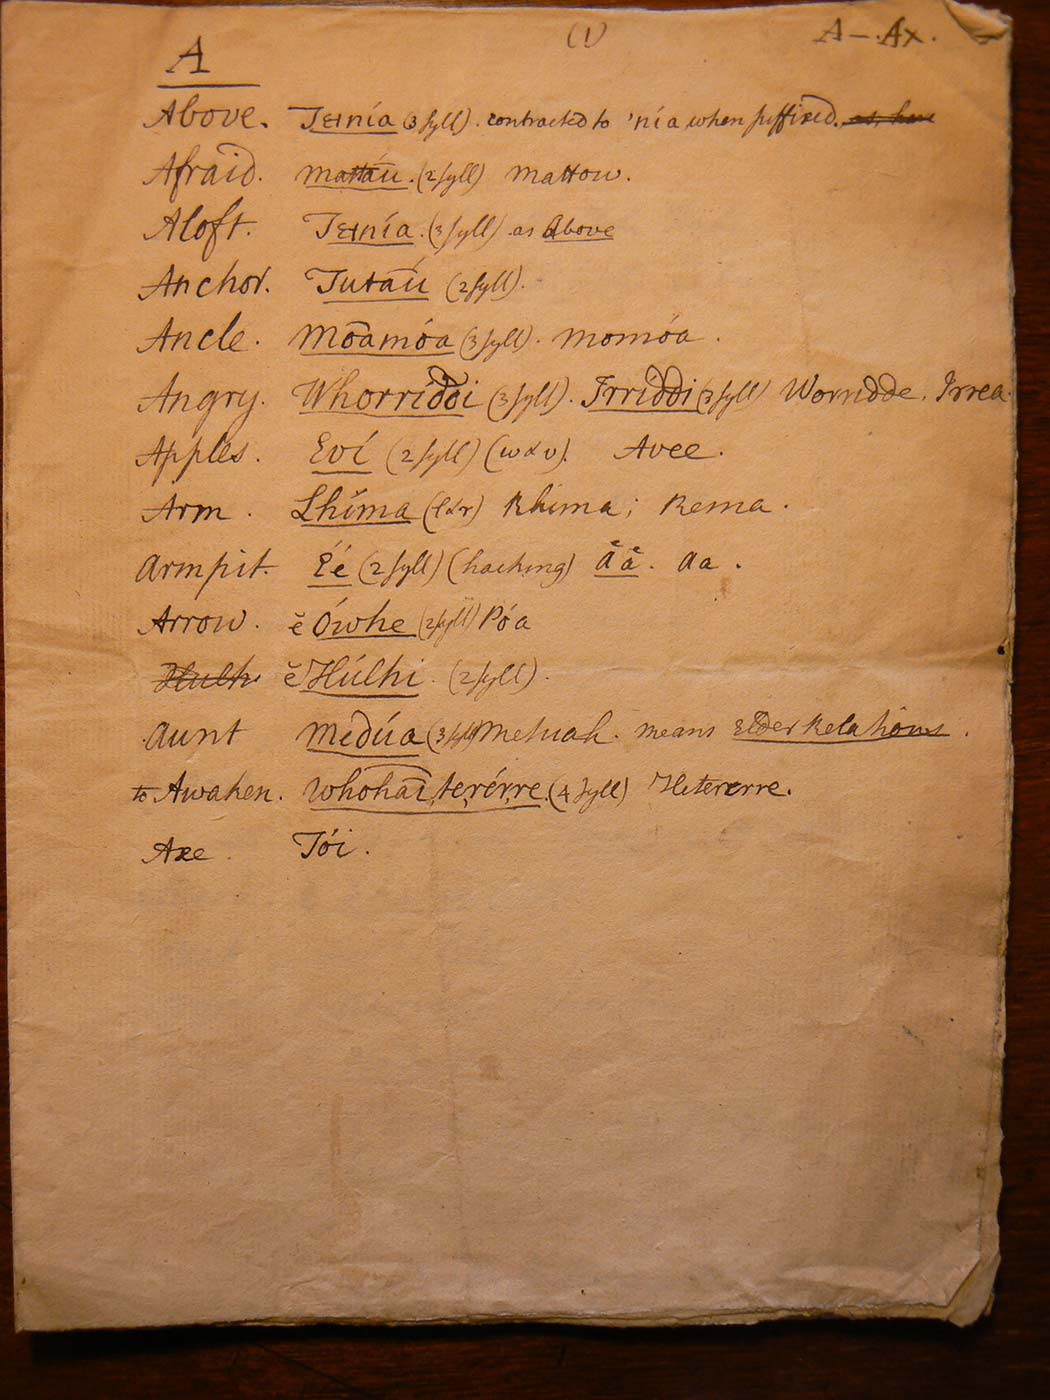 (1) A—.Ax.
A
Above. Tɛɪnía (3 syll). contracted to 'nía when suffixed. as, hau
Afraid. mattáu. (2 syll) mattow.
Aloft. Tɛɪnía. (3 syll) as Above
Anchor. Tutáu (2 syll).
Ancle. Moamóa (3 syll). momóa.
Angry. Whorríddi (3 syll). Irriddi (3 syll) Worridde. Irrea.
Apples. Eví (2 syll) (w & v). Avee.
Arm. Lhíma (l & r) Rhima; Rema.
Armpit. Éé (2 syll) (hacking) áá. aa.
Arrow. ĕ Ówhe (2 syll) Póa
Hulh ĕ Húlhi. (2 syll).
Aunt Medúa (3 syll) Metuah. means Elder Relations.
to Awaken. Whohai,terérre. (4 syll) Heterrerre.
Axe. Tói.